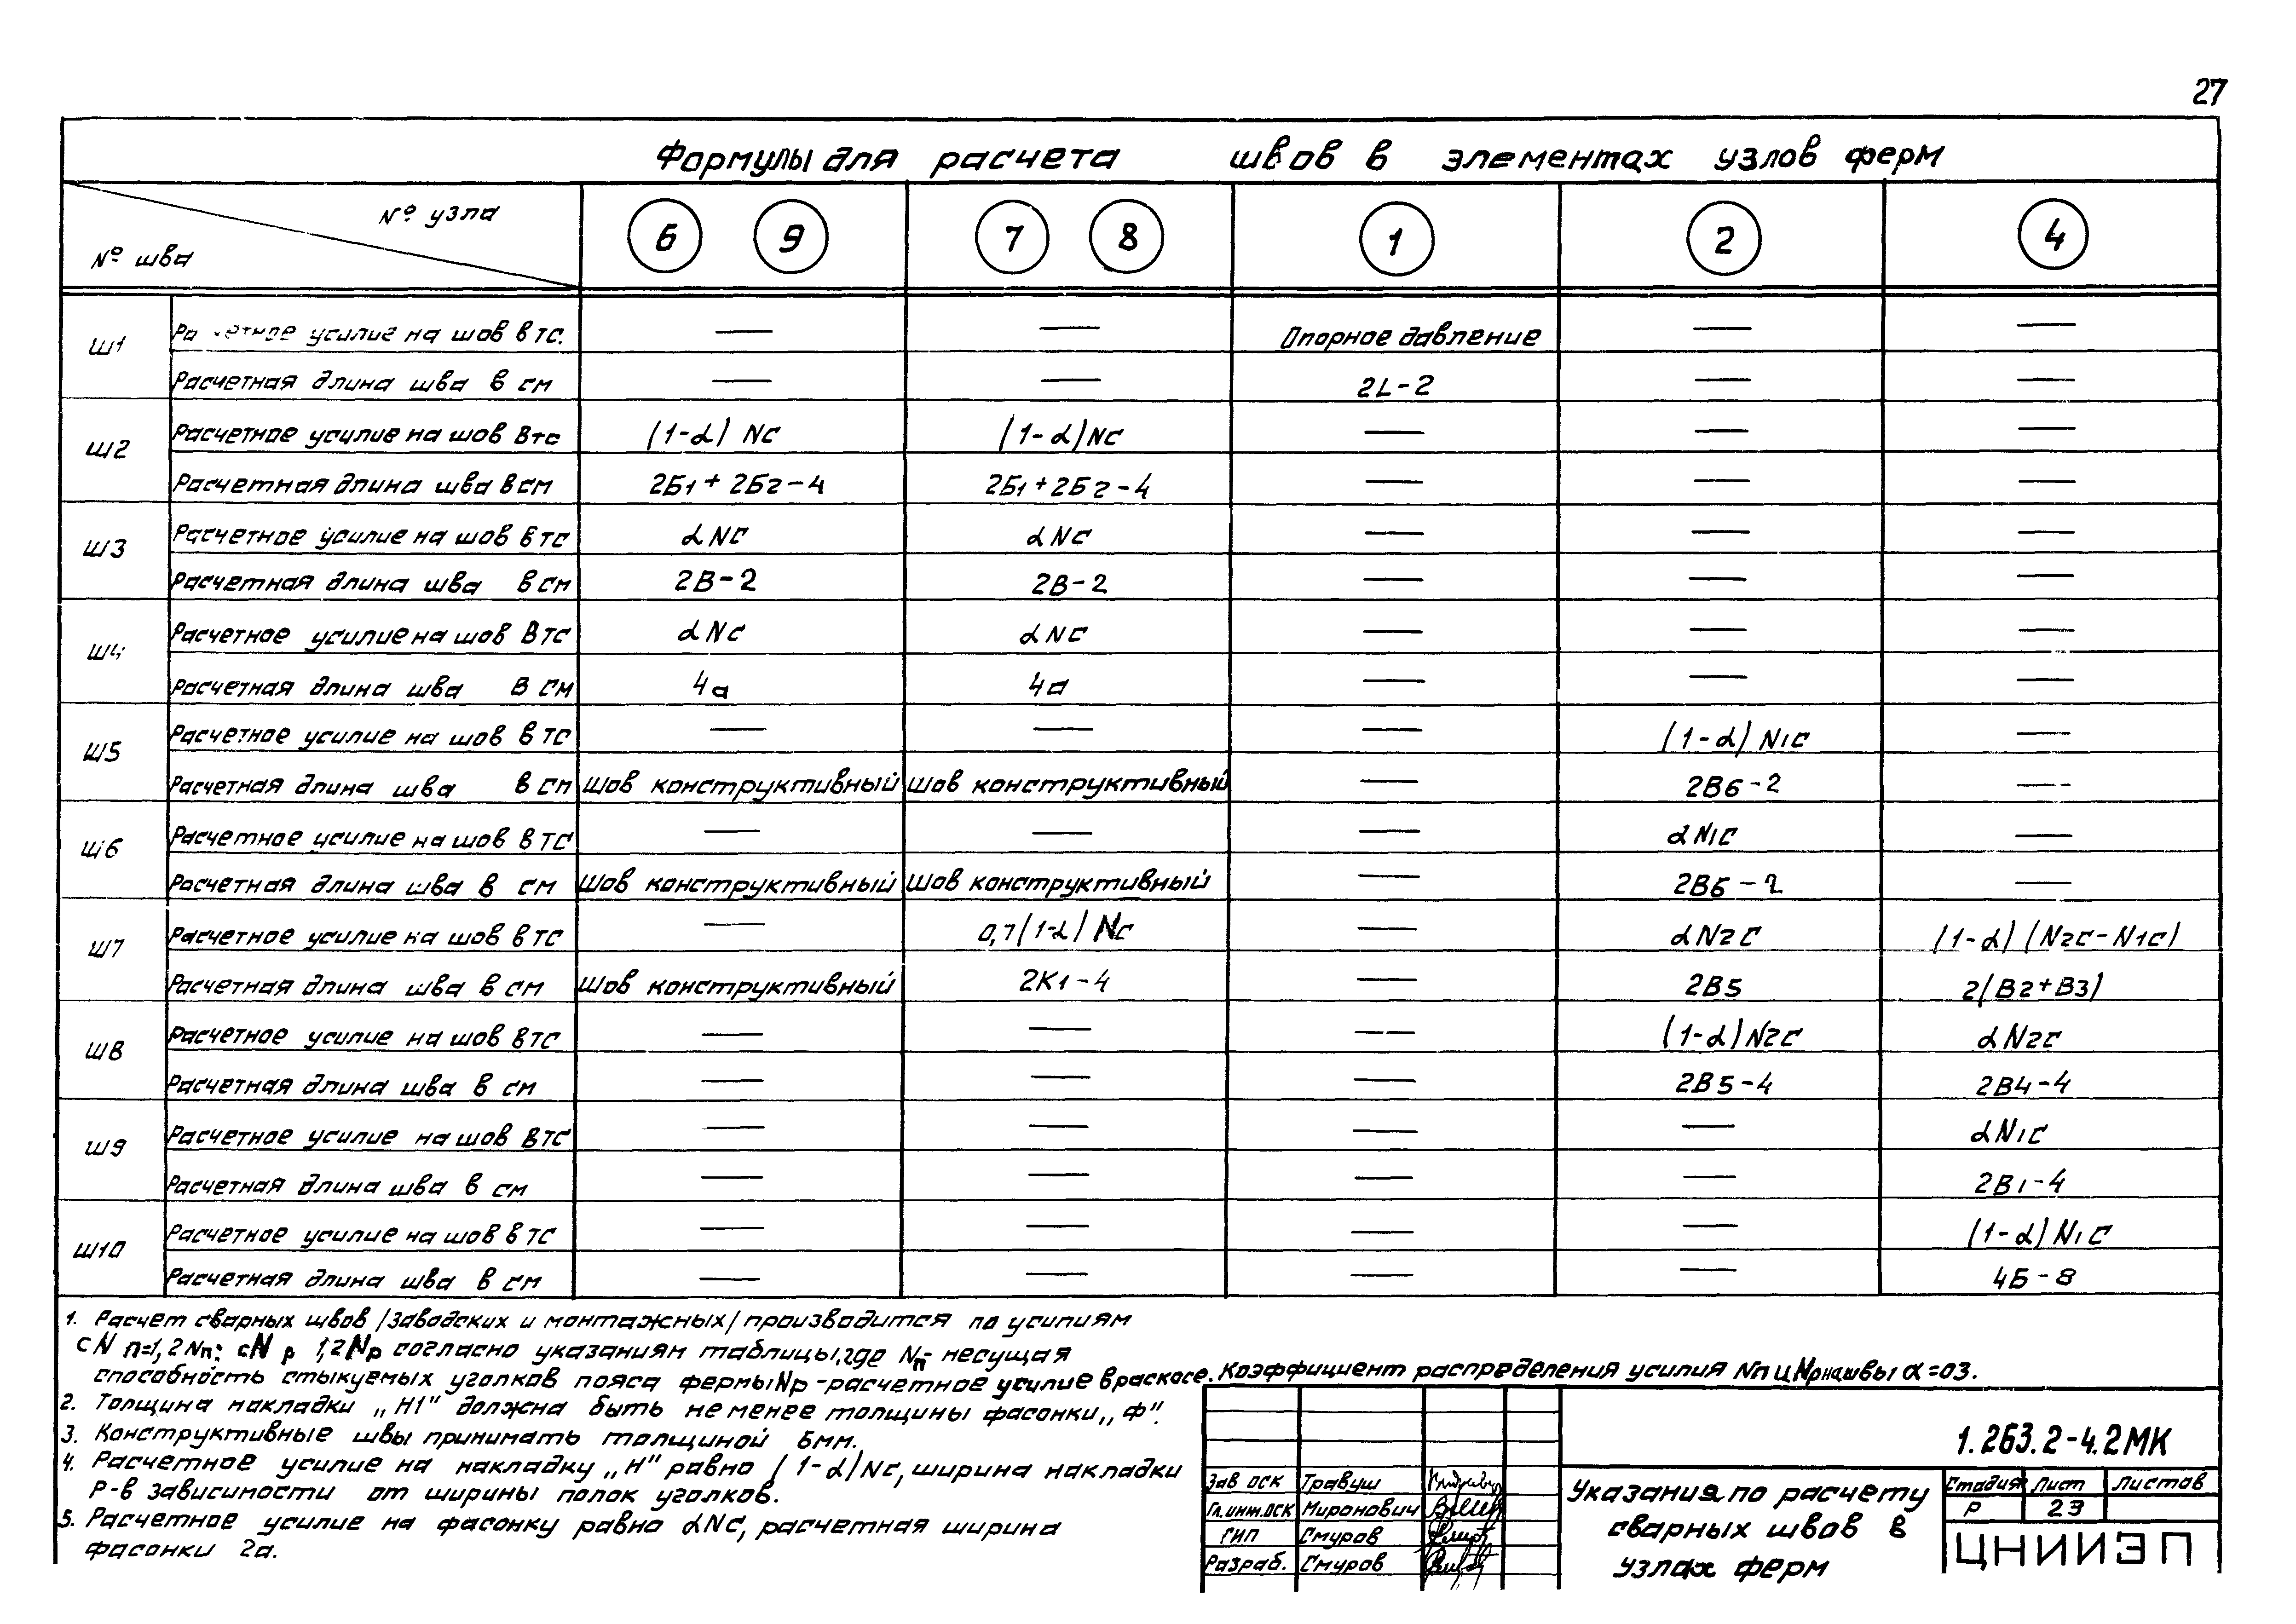 27
Формулы для расчета швов в элементах узлов ферм
№ узла
№ шва
6 9 7 8 1 2 4
Ш1 Расчетное усилие на шов в тс. — — Опорное давление — —
Расчетная длина шва в см — — 2L-2 — —
Ш2 Расчетное усилие на шов в тс (1-α) Nc (1-α) Nc — — —
Расчетная длина шва в см 2Б1+2Б2-4 2Б1+2Б2-4 — — —
Ш3 Расчетное усилие на шов в тс αNc αNc — — —
Расчетная длина шва в см 2В-2 2В-2 — — —
Ш4 Расчетное усилие на шов в тс αNc αNc — — —
Расчетная длина шва в см 4а 4а — — —
Ш5 Расчетное усилие на шов в тс — — — (1-α) N1c —
Расчетная длина шва в см Шов конструктивный Шов конструктивный — 2В6-2 —
Ш6 Расчетное усилие на шов в тс — — — αN1c —
Расчетная длина шва в см Шов конструктивный Шов конструктивный — 2В6-2 —
Ш7 Расчетное усилие на шов в тс — 0,7(1-α) Nc — αN2c (1-α) (N2c-N1c)
Расчетная длина шва в см Шов конструктивный 2К1-4 — 2В5 2(В2+В3)
Ш8 Расчетное усилие на шов в тс — — — (1-α) N2c αN2c
Расчетная длина шва в см — — — 2В5-4 2В4-4
Ш9 Расчетное усилие на шов в тс — — — — αN1c
Расчетная длина шва в см — — — — 2В1-4
Ш10 Расчетное усилие на шов в тс — — — — (1-α) N1c
Расчетная длина шва в см — — — — 4Б-8
1. Расчет сварных швов /заводских и монтажных/ производится по усилиям
cN п=1,2Nп; cN р 1,2Nр согласно указаниям таблицы, где Nп- несущая
способность стыкуемых уголков пояса фермы Nр -расчетное усилие в раскосе. Коэффициент распределения усилия Nп и Nр на швы α =03.
2. Толщина накладки „Н1" должна быть не менее толщины фасонки „Ф".
3. Конструктивные швы принимать толщиной 6мм.
4. Расчетное усилие на накладку „Н" равно (1-α) Nc, ширина накладки
Р-в зависимости от ширины полок уголков.
5. Расчетное усилие на фасонку равно αNc, расчетная ширина
фасонки 2а.
1.263.2-4.2МК
Зав ОСК Травуш
Гл.инж.ОСК Миронович
ГИП Смуров
Разраб. Смуров
Указания по расчету
сварных швов в
узлах ферм
Стадия Лист Листов
Р 23
ЦНИИЭП